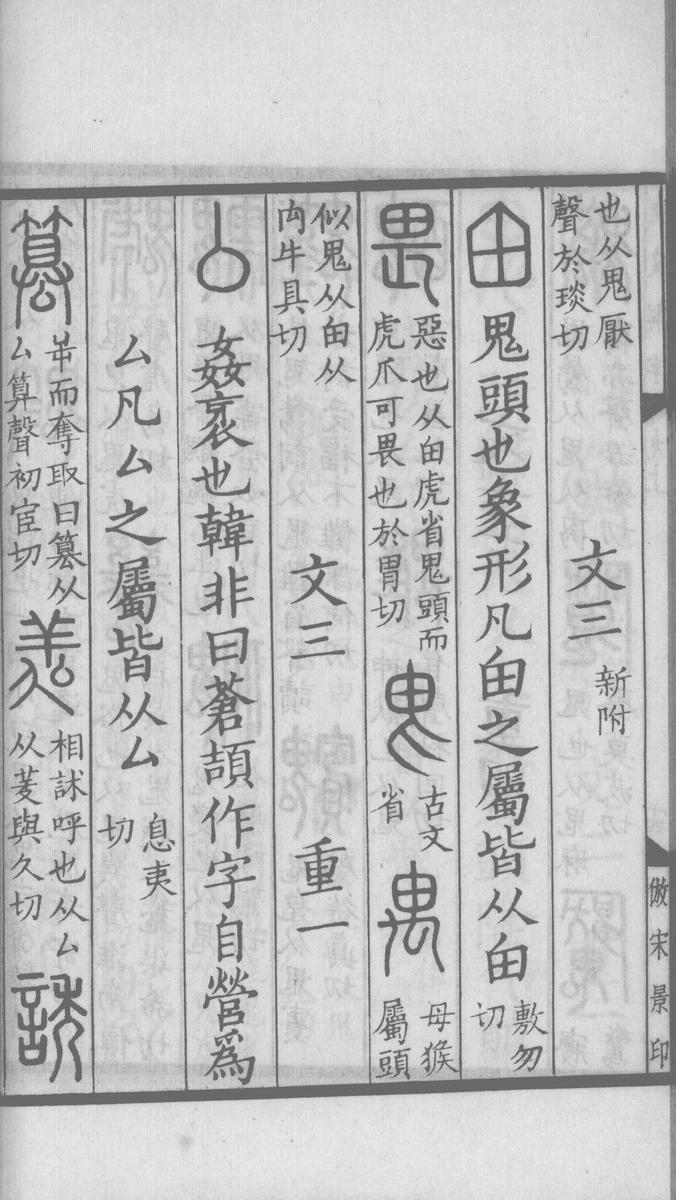 也从鬼厭
聲於琰切
文三
新附
甶
鬼頭也象形凡甶之屬皆从甶
敷勿
切
畏
惡也从甶虎省鬼頭而
虎爪可畏也於胃切
古文
省
禺
母猴
屬頭
似鬼从甶从
禸牛具切
文三
重一
厶
姦衺也韓非曰蒼頡作字自營爲
厶凡厶之屬皆从厶
息夷
切
篡
屰而奪取曰篡从
厶算聲初宦切
羑
相訹呼也从厶
从羑與久切
誘
倣宋景印